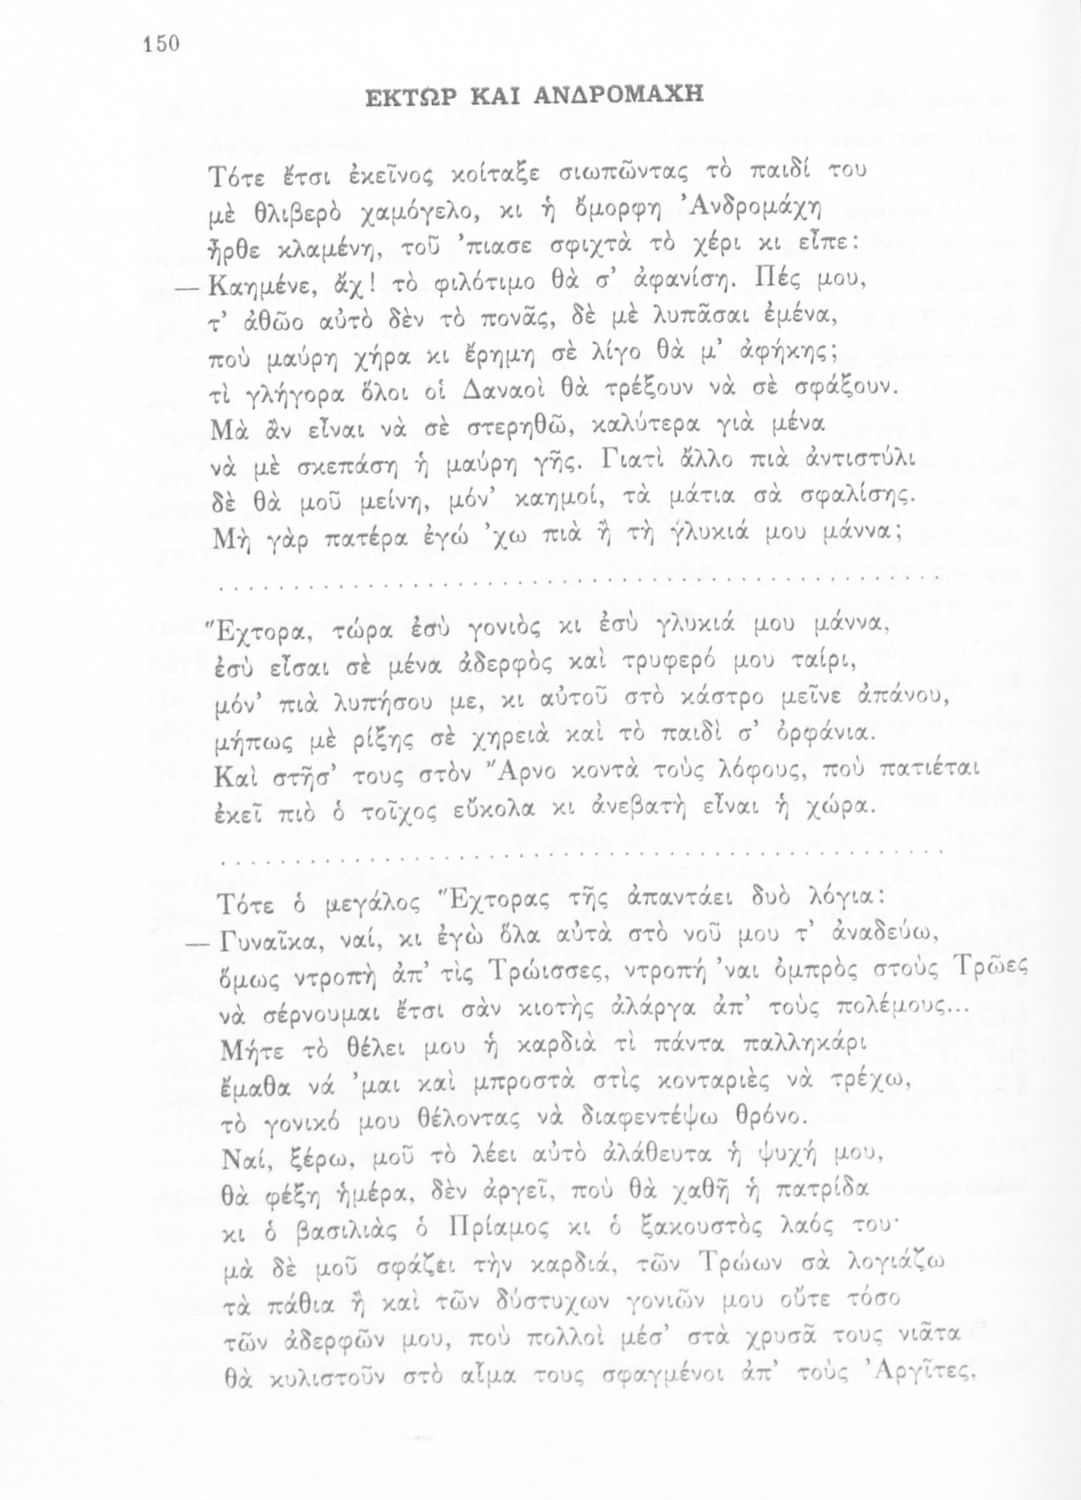 150
ΕΚΤΩΡ ΚΑΙ ΑΝΔΡΟΜΑΧΗ
Τότε ἔτσι ἐκεῖνος κοίταξε σιωπῶντας τὸ παιδί του
μὲ θλιβερὸ χαμόγελο, κι ἡ ὄμορφη Ἀνδρομάχη
ἦρθε κλαμένη, τοῦ ’πιασε σφιχτὰ τὸ χέρι κι εἶπε:
— Καημένε, ἄχ! τὸ φιλότιμο θὰ σ’ ἀφανίση. Πές μου,
τ’ ἀθῶο αὐτὸ δὲν τὸ πονᾶς, δὲ μὲ λυπᾶσαι ἐμένα,
ποὺ μαύρη χήρα κι ἔρημη σὲ λίγο θὰ μ’ ἀφήκης;
τὶ γλήγορα ὅλοι οἱ Δαναοὶ θὰ τρέξουν νὰ σὲ σφάξουν.
Μὰ ἂν εἶναι νὰ σὲ στερηθῶ, καλύτερα γιὰ μένα
νὰ μὲ σκεπάση ἡ μαύρη γῆς. Γιατὶ ἄλλο πιὰ ἀντιστύλι
δὲ θὰ μοῦ μείνη, μόν’ καημοί, τὰ μάτια σὰ σφαλίσης.
Μὴ γὰρ πατέρα ἐγώ ’χω πιὰ ἢ τὴ γλυκιά μου μάννα;
. . . . . . . . . . . . . . . . . . . . . . . . . . . . . . . . . . . . . . . .
Ἕχτορα, τώρα ἐσὺ γονιὸς κι ἐσὺ γλυκιά μου μάννα,
ἐσὺ εἶσαι σὲ μένα ἀδερφὸς καὶ τρυφερό μου ταίρι,
μόν’ πιὰ λυπήσου με, κι αὐτοῦ στὸ κάστρο μεῖνε ἀπάνου,
μήπως μὲ ρίξης σὲ χηρειὰ καὶ τὸ παιδὶ σ’ ὀρφάνια.
Καὶ στῆσ’ τους στὸν Ἄρνο κοντὰ τοὺς λόφους, ποὺ πατιέται
ἐκεῖ πιὸ ὁ τοῖχος εὔκολα κι ἀνεβατὴ εἶναι ἡ χώρα.
. . . . . . . . . . . . . . . . . . . . . . . . . . . . . . . . . . . . . . . .
Τότε ὁ μεγάλος Ἕχτορας τῆς ἀπαντάει δυὸ λόγια:
— Γυναῖκα, ναί, κι ἐγὼ ὅλα αὐτὰ στὸ νοῦ μου τ’ ἀναδεύω,
ὅμως ντροπὴ ἀπ’ τὶς Τρώισσες, ντροπή ’ναι ὀμπρὸς στοὺς Τρῶες
νὰ σέρνουμαι ἔτσι σὰν κιοτὴς ἀλάργα ἀπ’ τοὺς πολέμους...
Μήτε τὸ θέλει μου ἡ καρδιὰ τὶ πάντα παλληκάρι
ἔμαθα νά ’μαι καὶ μπροστὰ στὶς κονταριὲς νὰ τρέχω,
τὸ γονικό μου θέλοντας νὰ διαφεντέψω θρόνο.
Ναί, ξέρω, μοῦ τὸ λέει αὐτὸ ἀλάθευτα ἡ ψυχή μου,
θὰ φέξη ἡμέρα, δὲν ἀργεῖ, ποὺ θὰ χαθῆ ἡ πατρίδα
κι ὁ βασιλιὰς ὁ Πρίαμος κι ὁ ξακουστὸς λαός του·
μὰ δὲ μοῦ σφάζει τὴν καρδιά, τῶν Τρώων σὰ λογιάζω
τὰ πάθια ἢ καὶ τῶν δύστυχων γονιῶν μου οὔτε τόσο
τῶν ἀδερφῶν μου, ποὺ πολλοὶ μέσ’ στὰ χρυσᾶ τους νιᾶτα
θὰ κυλιστοῦν στὸ αἷμα τους σφαγμένοι ἀπ’ τοὺς Ἀργῖτες,